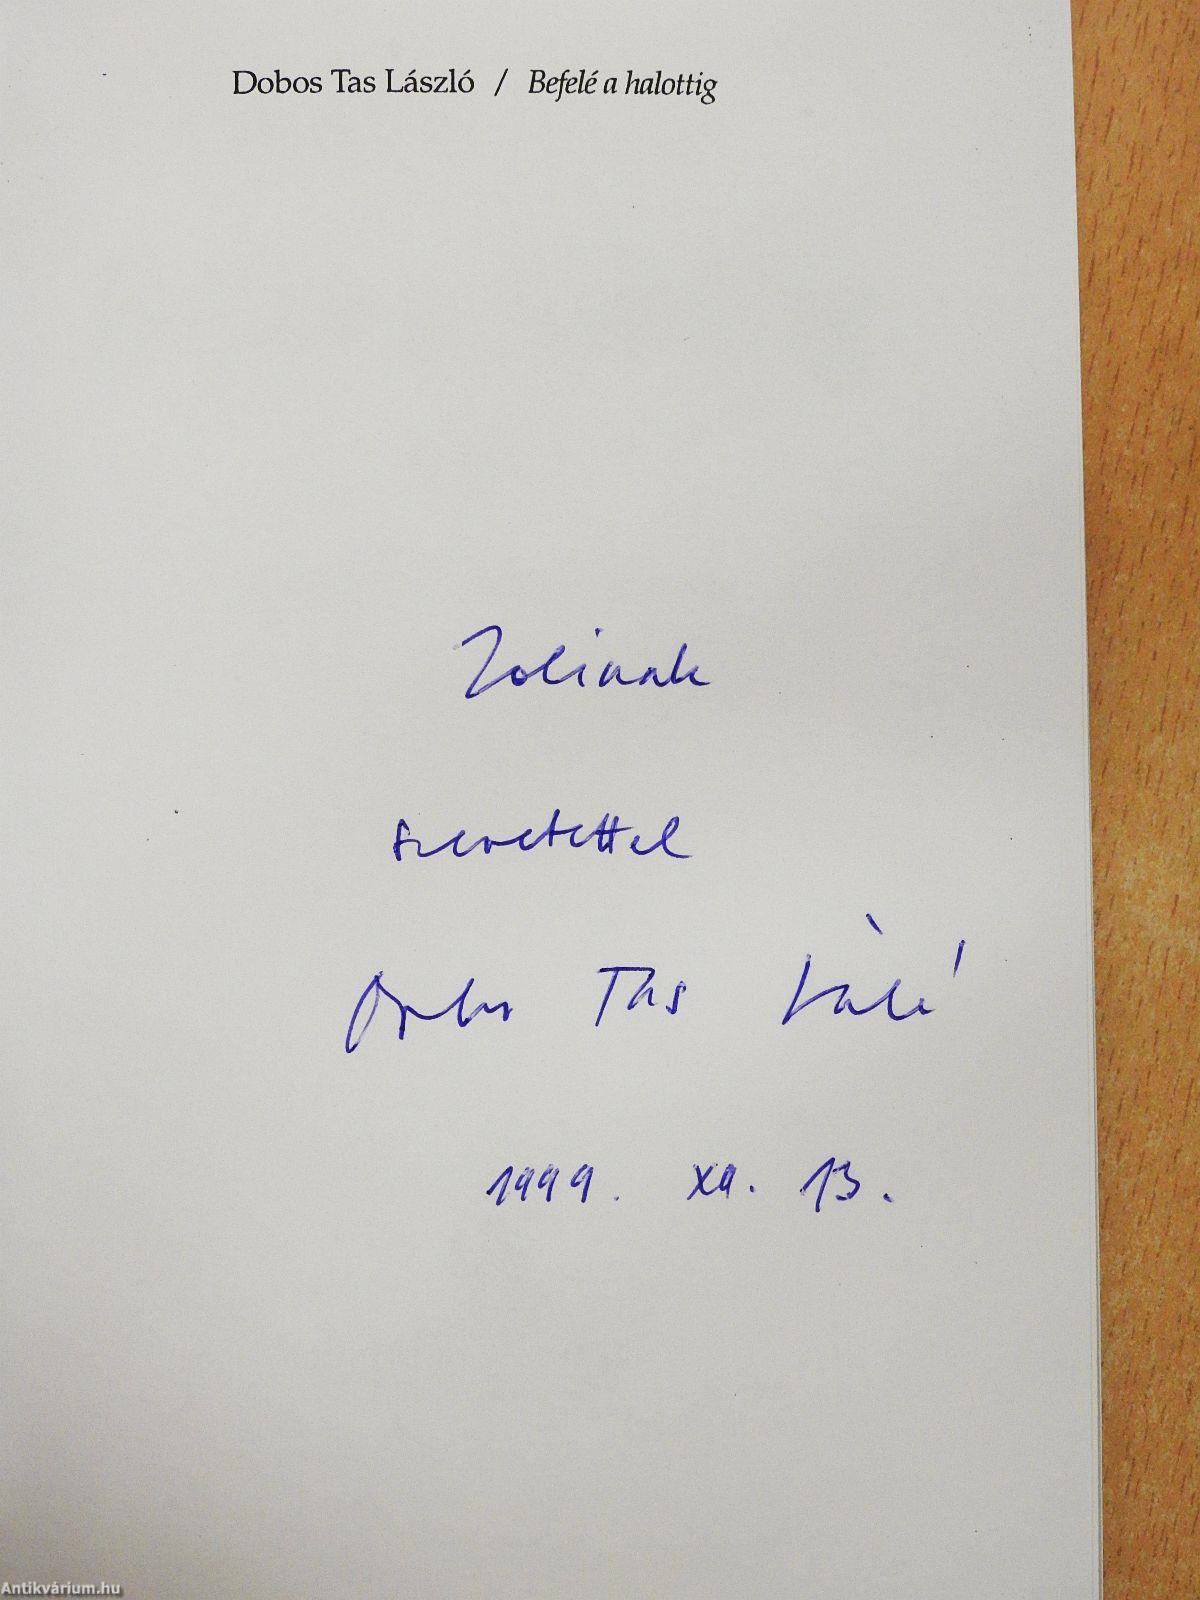 Dobos Tas László / Befelé a halottig
Zolinak
szeretettel
Dobos Tas László
1999. XII. 13.
Antikvárium.hu